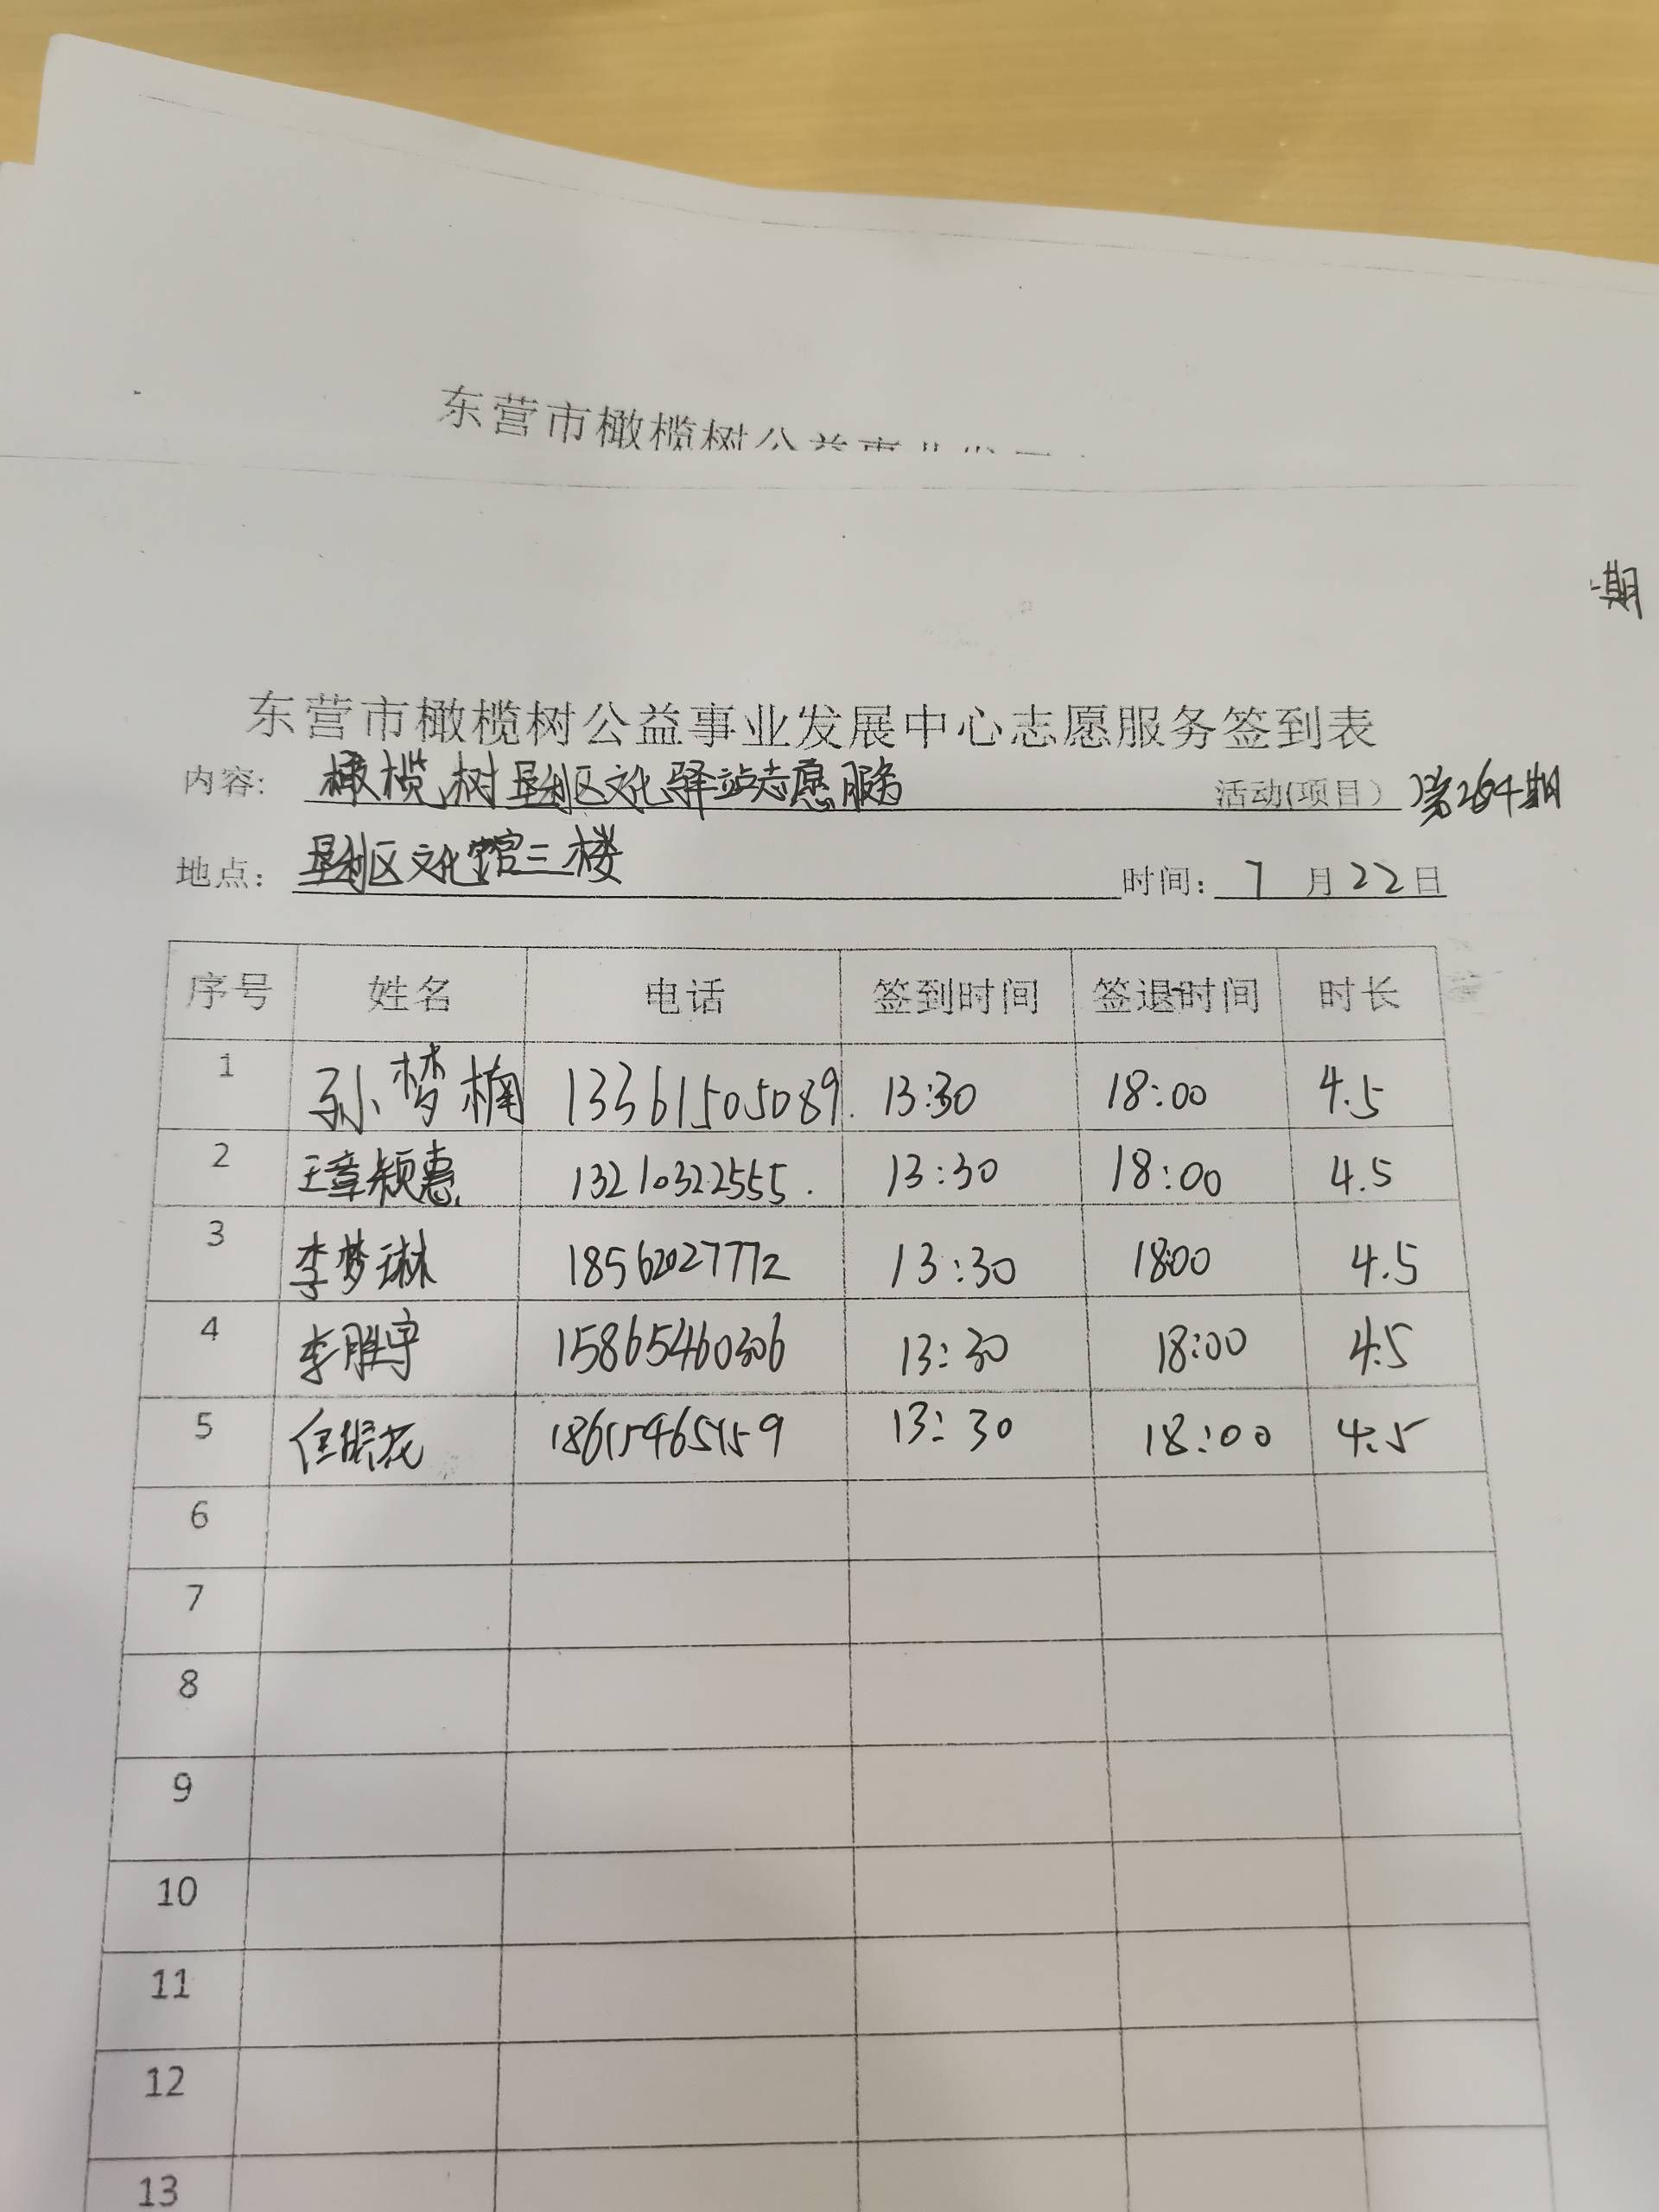 东营市橄榄树公益事业发
期
东营市橄榄树公益事业发展中心志愿服务签到表
内容: 橄榄树垦利区文化驿站志愿服务 活动(项目) 第264期
地点: 垦利区文化馆三楼 时间: 7月22日
序号 姓名 电话 签到时间 签退时间 时长
1 孙梦楠 13361505089. 13:30 18:00 4.5
2 王章颖惠 13210322555. 13:30 18:00 4.5
3 李梦琳 18562027772 13:30 18:00 4.5
4 李胜宇 15865460306 13:30 18:00 4.5
5 18615465159 13:30 18:00 4.5
6
7
8
9
10
11
12
13